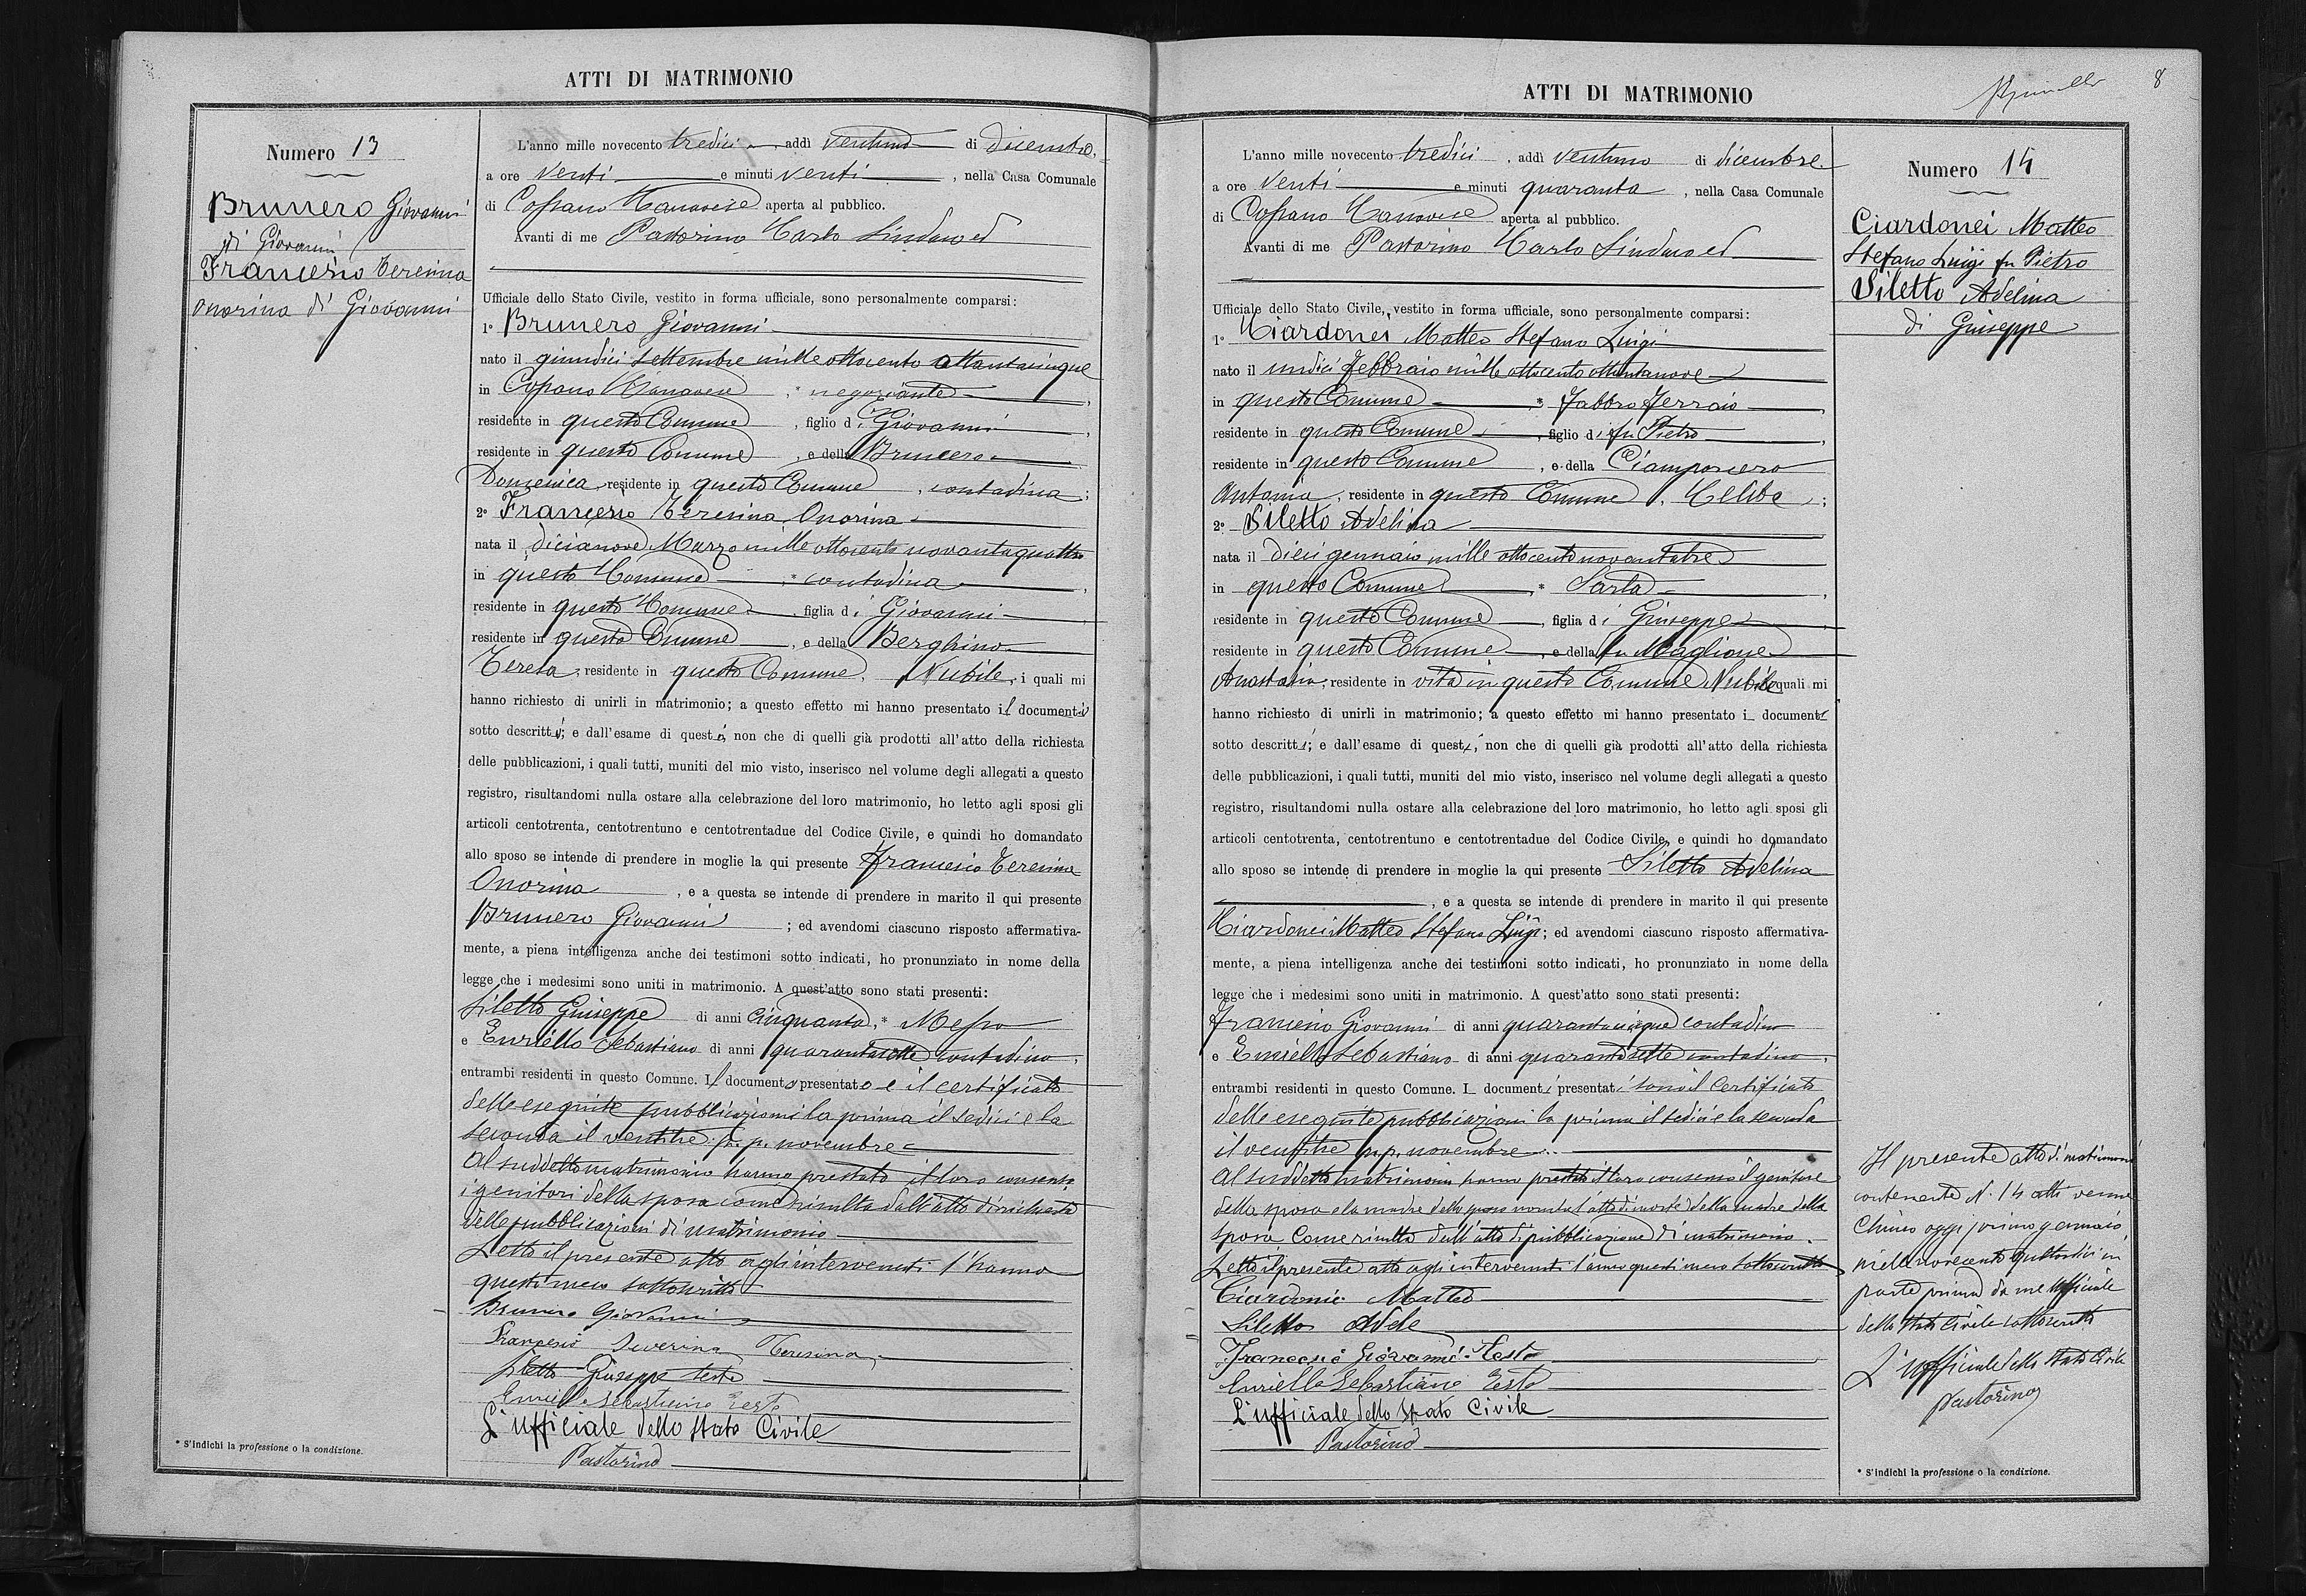 ATTI DI MATRIMONIO
Numero 13
Brunero Giovanni
di Giovanni
Francesio Teresina
Onorina di Giovanni
L'anno mille novecento tredici, addì ventuno di dicembre,
a ore venti e minuti venti, nella Casa Comunale
di Cossano Canavese aperta al pubblico.
Avanti di me Pastorino Carlo Sindaco ed
Ufficiale dello Stato Civile, vestito in forma ufficiale, sono personalmente comparsi:
1° Brunero Giovanni
nato il quindici settembre mille ottocento ottantacinque
in Cossano Canavese, * negoziante,
residente in questo Comune, figlio di Giovanni,
residente in questo Comune, e della Brunero
Domenica, residente in questo Comune, contadina;
2° Francesio Teresina Onorina
nata il diciannove Marzo mille ottocento novantaquattro
in questo Comune, * contadina,
residente in questo Comune, figlia di Giovanni,
residente in questo Comune, e della Berghino
Teresa, residente in questo Comune, Nubile, i quali mi
hanno richiesto di unirli in matrimonio; a questo effetto mi hanno presentato il documento
sotto descritto; e dall'esame di questo, non che di quelli già prodotti all'atto della richiesta
delle pubblicazioni, i quali tutti, muniti del mio visto, inserisco nel volume degli allegati a questo
registro, risultandomi nulla ostare alla celebrazione del loro matrimonio, ho letto agli sposi gli
articoli centotrenta, centotrentuno e centotrentadue del Codice Civile, e quindi ho domandato
allo sposo se intende di prendere in moglie la qui presente Francesio Teresina
Onorina, e a questa se intende di prendere in marito il qui presente
Brunero Giovanni; ed avendomi ciascuno risposto affermativa-
mente, a piena intelligenza anche dei testimoni sotto indicati, ho pronunziato in nome della
legge che i medesimi sono uniti in matrimonio. A quest'atto sono stati presenti:
Siletto Giuseppe di anni cinquanta, * Messo
e Enriello Sebastiano di anni quarantasette contadino,
entrambi residenti in questo Comune. Il documento presentato è il certificato
delle eseguite pubblicazioni la prima il sedici e la
seconda il ventitre p. p. novembre
Al suddetto matrimonio hanno prestato il loro consenso
i genitori della sposa come risulta dall'atto di richiesta
delle pubblicazioni di matrimonio
Letto il presente atto agli intervenuti l'hanno
questi meco sottoscritto
Brunero Giovanni
Francesio Severina Teresina
Siletto Giuseppe teste
Enriello Sebastiano Teste
L'ufficiale dello stato Civile
Pastorino
* S'indichi la professione o la condizione.
ATTI DI MATRIMONIO
8
L'anno mille novecento tredici, addì ventuno di dicembre
a ore venti e minuti quaranta, nella Casa Comunale
di Cossano Canavese aperta al pubblico.
Avanti di me Pastorino Carlo Sindaco ed
Ufficiale dello Stato Civile, vestito in forma ufficiale, sono personalmente comparsi:
1° Ciardonei Matteo Stefano Luigi
nato il undici febbraio mille ottocento ottantanove
in questo Comune, * Fabbro Ferraio,
residente in questo Comune, figlio di fu Pietro,
residente in questo Comune, e della Ciamporcero
Antonia, residente in questo Comune, Celibe;
2° Siletto Adelina
nata il dieci gennaio mille ottocento novantatre
in questo Comune, * Sarta,
residente in questo Comune, figlia di Giuseppe,
residente in questo Comune, e della fu Maglione
Anastasia, residente in vita in questo Comune, Nubile, i quali mi
hanno richiesto di unirli in matrimonio; a questo effetto mi hanno presentato i documenti
sotto descritti; e dall'esame di questi, non che di quelli già prodotti all'atto della richiesta
delle pubblicazioni, i quali tutti, muniti del mio visto, inserisco nel volume degli allegati a questo
registro, risultandomi nulla ostare alla celebrazione del loro matrimonio, ho letto agli sposi gli
articoli centotrenta, centotrentuno e centotrentadue del Codice Civile, e quindi ho domandato
allo sposo se intende di prendere in moglie la qui presente Siletto Adelina
, e a questa se intende di prendere in marito il qui presente
Ciardonei Matteo Stefano Luigi; ed avendomi ciascuno risposto affermativa-
mente, a piena intelligenza anche dei testimoni sotto indicati, ho pronunziato in nome della
legge che i medesimi sono uniti in matrimonio. A quest'atto sono stati presenti:
Francesio Giovanni di anni quarantacinque contadino
e Enriello Sebastiano di anni quarantasette contadino,
entrambi residenti in questo Comune. I documenti presentati sono il Certificato
delle eseguite pubblicazioni la prima il sedici e la seconda
il ventitre p. p. novembre
Al suddetto matrimonio hanno prestato il loro consenso il genitore
della sposa e la madre dello sposo l'atto di morte della madre della
sposa come risulta dall'atto di pubblicazione di matrimonio.
Letto il presente atto agli intervenuti l'anno questi meco sottoscritto
Ciardonei Matteo
Siletto Adele
Francesio Giovanni Teste
Enriello Sebastiano Teste
L'ufficiale dello stato Civile
Pastorino
Numero 14
Ciardonei Matteo
Stefano Luigi fu Pietro
Siletto Adelina
di Giuseppe
Il presente atto di matrimonio
contenente N. 14 atti venne
chiuso oggi primo gennaio
mille novecento quattordici in
parte prima da me Ufficiale
dello Stato Civile sottoscritto
L'ufficiale dello Stato Civile
Pastorino
* S'indichi la professione o la condizione.